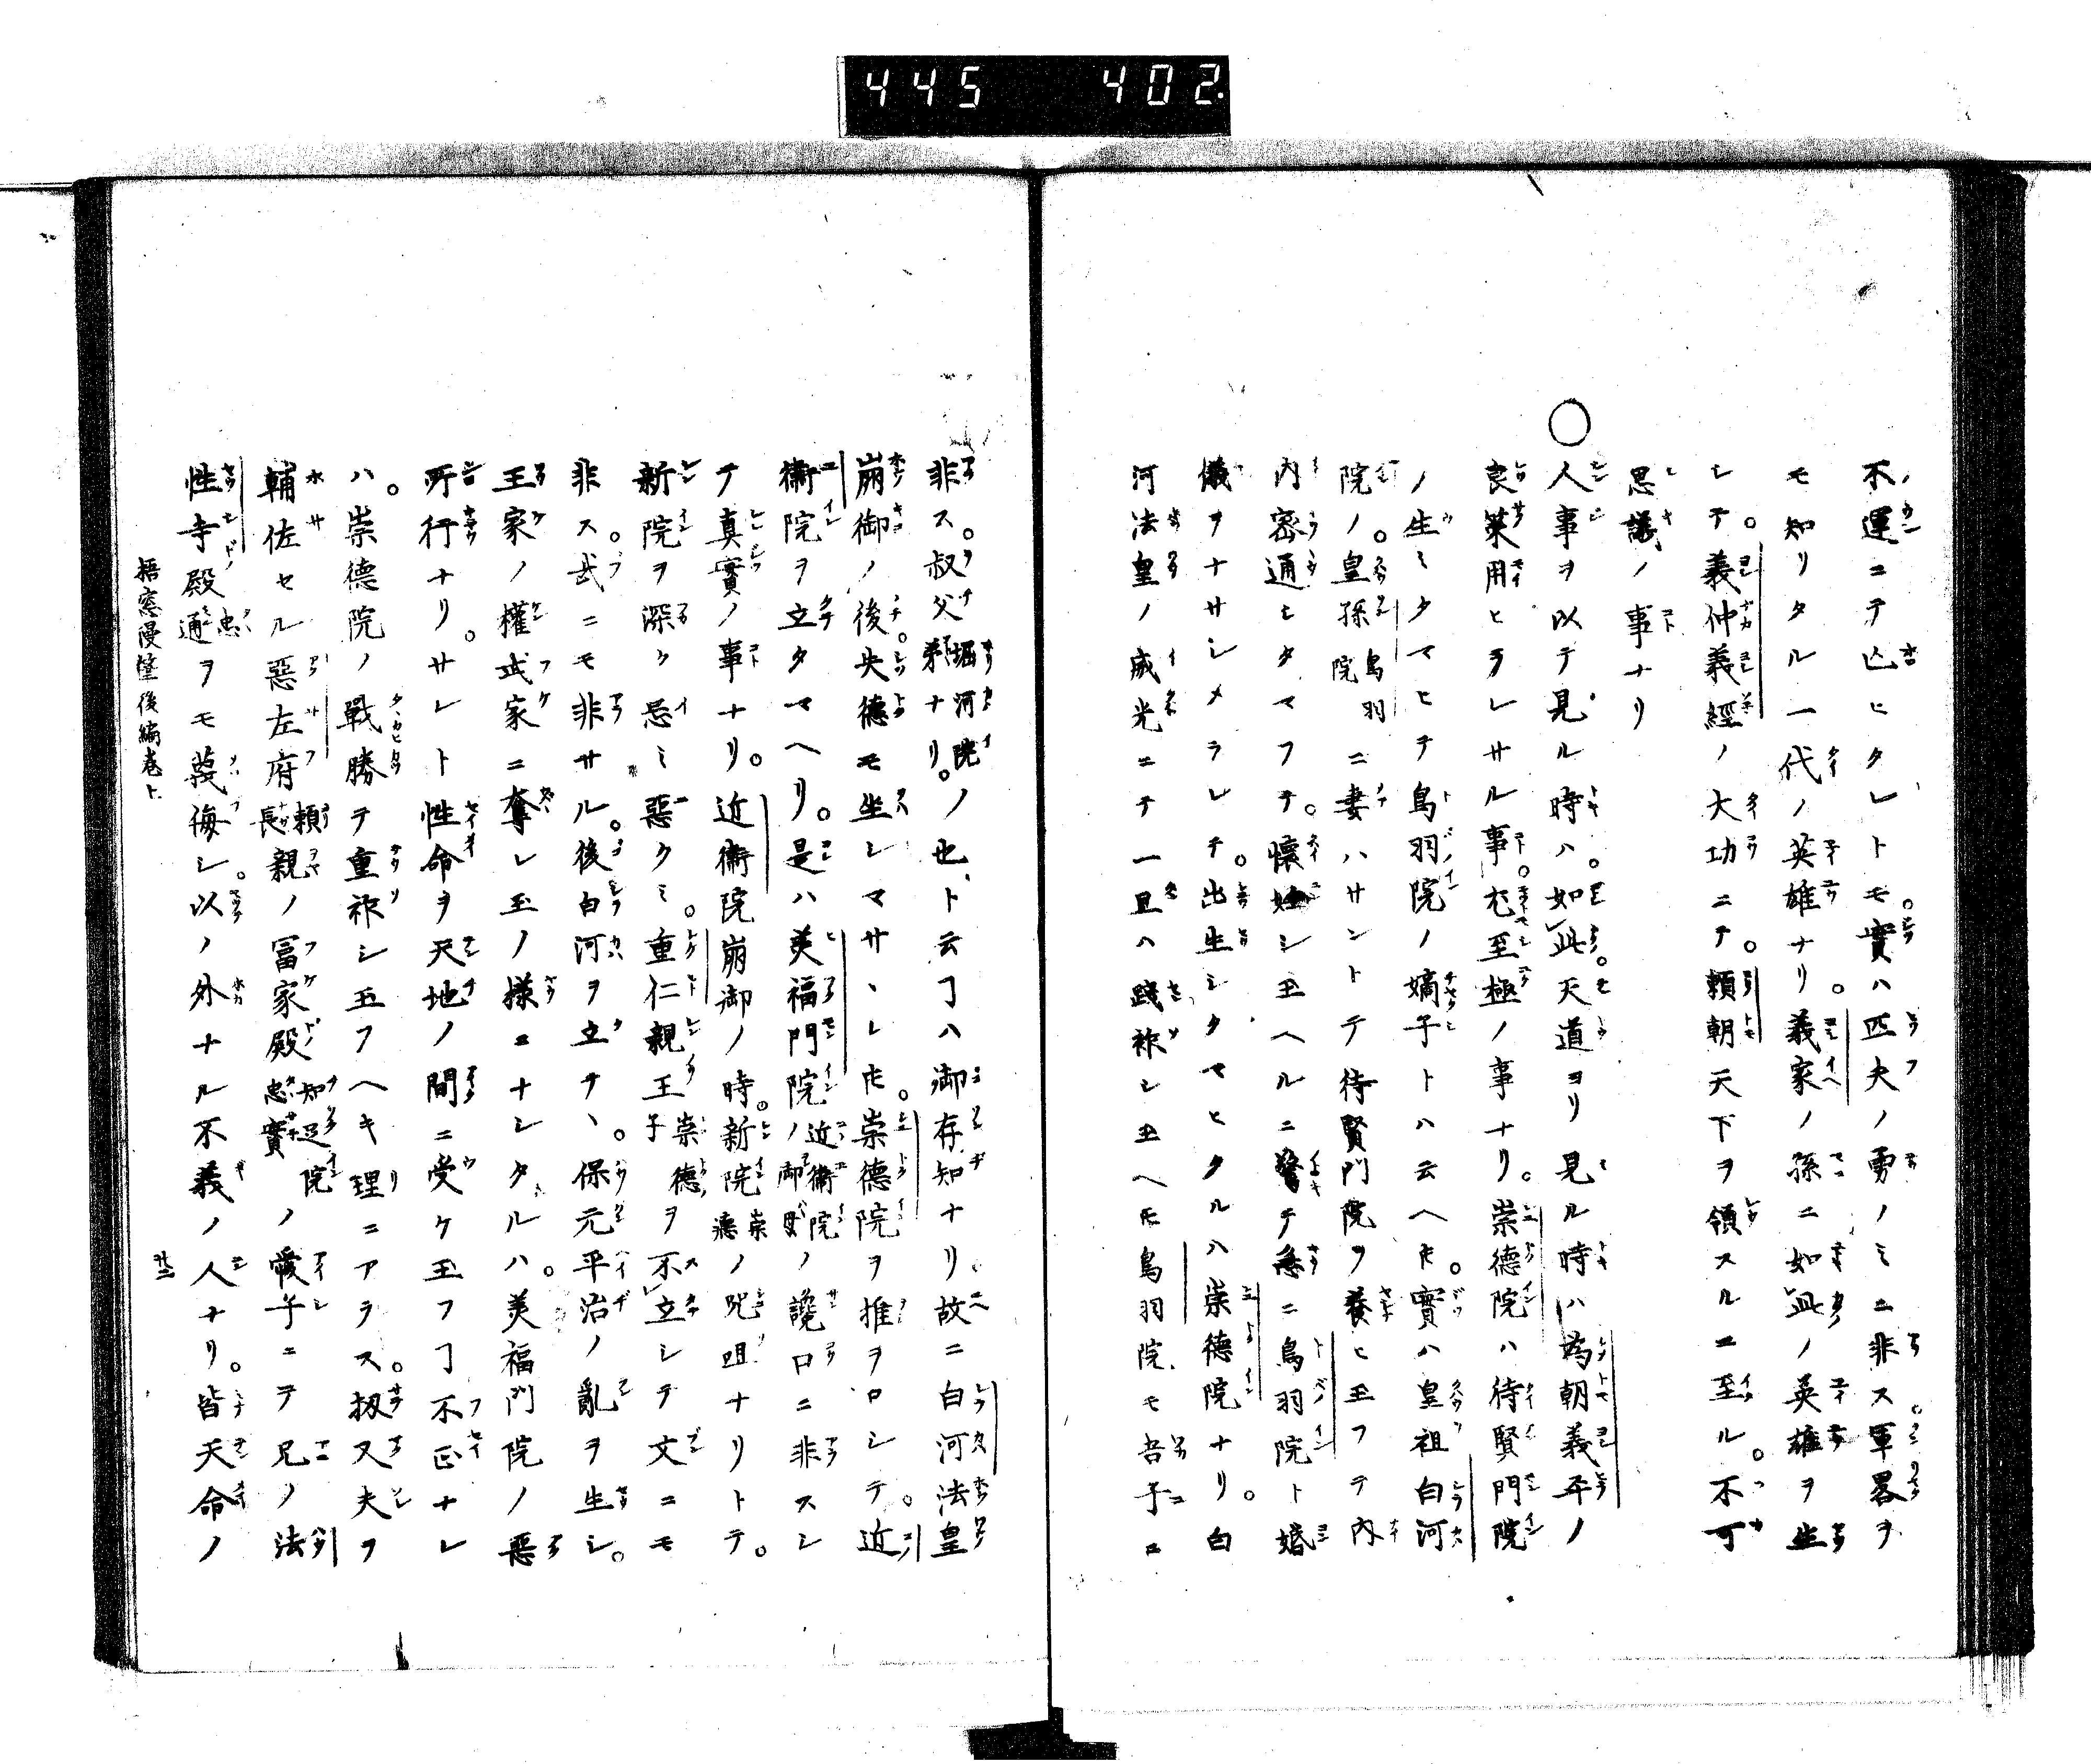 445 402.
不運ニテ亡ヒタレトモ。實ハ匹夫ノ勇ノミニ非ス。軍畧ヲ
モ知リタル一代ノ英雄ナリ。義家ノ孫ニ如此ノ英雄ヲ生
シテ。義仲義經ノ大功ニテ。頼朝天下ヲ領スルニ至ル。不可
思議ノ事ナリ
○人事ヲ以テ見ル時ハ。如此。天道ヨリ見ル時ハ為朝義平ノ
良策用ヒラレサル事。尤至極ノ事ナリ。崇德院ハ待賢門院
ノ生ミタマヒテ鳥羽院ノ嫡子トハ云ヘ𪜈。實ハ皇祖白河
院ノ。皇孫鳥羽院ニ妻ハサントテ待賢門院ヲ養ヒ玉フテ内
内密通ヒタマフテ。懷妊シ玉ヘルニ驚テ急ニ鳥羽院ト婚
儀ヲナサシメラレテ。出生シタマヒタルハ崇德院ナリ。白
河法皇ノ威光ニテ一旦ハ踐祚シ玉ヘ𪜈鳥羽院モ吾子ニ
非ス。叔父堀河院弟ナリ。ノ也、ト云ヿハ御存知ナリ故ニ白河法皇
崩御ノ後。失德モ坐シマサヽレ𪜈。崇德院ヲ推ヲロシテ。近
衞院ヲ立タマヘリ。是ハ美福門院近衞院ノ御母ノ讒口ニ非スシ
テ真實ノ事ナリ。近衞院崩御ノ時。新院崇德ノ咒咀ナリトテ。
新院ヲ深ク忌ミ惡クミ。重仁親王崇德子ヲ不立シテ文ニモ
非ス。武ニモ非サル。後白河ヲ立テ、。保元平治ノ亂ヲ生シ。
王家ノ權武家ニ奪レ玉ノ樣ニナシタルハ。美福門院ノ惡
所行ナリ。サレト性命ヲ天地ノ間ニ受ケ玉フヿ不正ナレ
ハ。崇德院ノ戰勝テ重祚シ玉フヘキ理ニアラス。扨又夫ヲ
輔佐セル惡左府頼長親ノ冨家殿知足院忠實ノ愛子ニテ兄ノ法
性寺殿忠通ヲモ蔑侮シ。以ノ外ナル不義ノ人ナリ。皆天命ノ
梧窓漫筆後編卷上
廿二